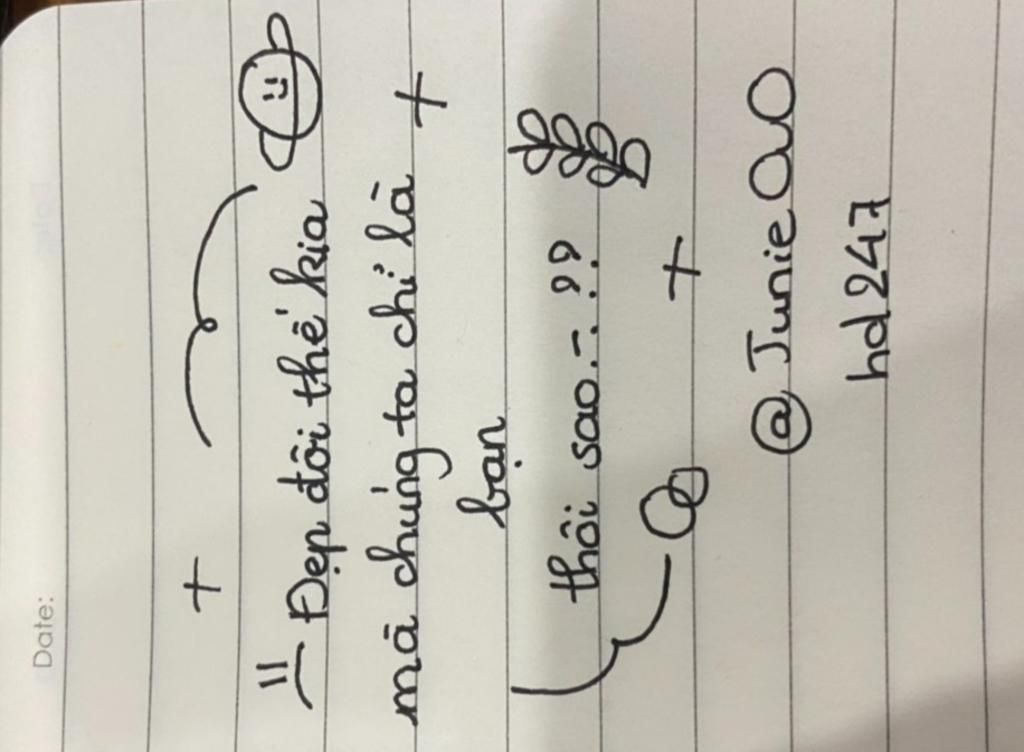 Date:
Đẹp đôi thế kia
mà chúng ta chỉ là
bạn
thôi sao.–.??
@Junie
hd247